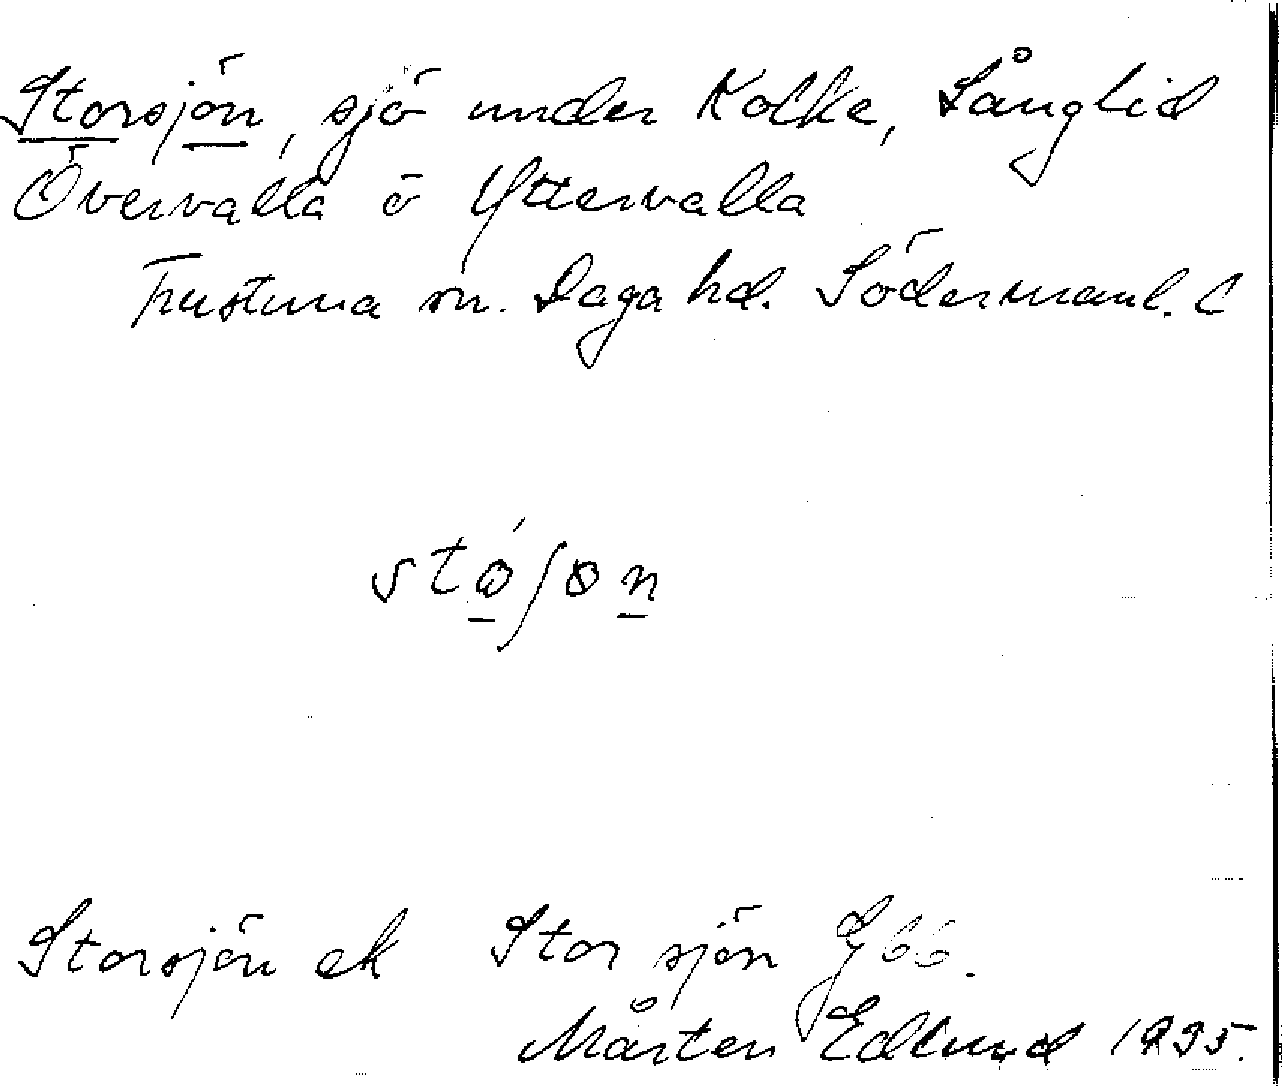 Storsjön, sjö under Kolke, Långlid
Övervalla o Yttervalla
Frustuna sn. Daga hd. Södermanl. L
stóʃɵn
Storsjön ek Stor sjön G 66.
Mårten Edlund 1935.